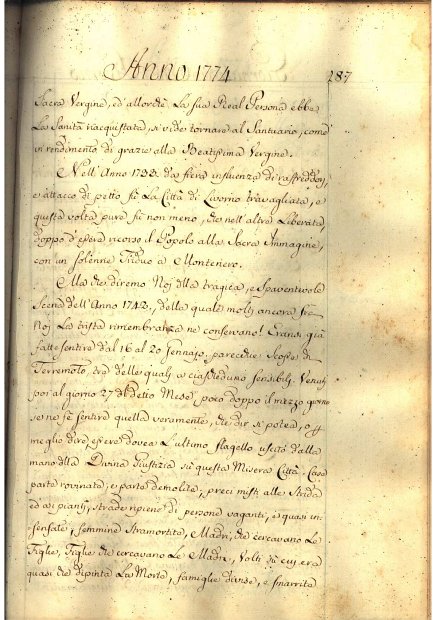 Anno 1774 287
Sacra Vergine, ed allorchè la sua Real Persona ebbe
la Sanità riacquistata, si vide tornare al Santuario, come
in rendimento di grazie alla Beatissima Vergine.
Nell' Anno da fiera influenza di raffreddori,
e attacco di petto fù la Città di Livorno travagliata, e
questa volta pure fù non meno, che nell' altre liberata,
doppo d' essere ricorso il Popolo alla Sacra Immagine,
con un solenne Triduo a Montenero.
Ma che diremo Noj della tragica, e Spaventevole
Scena dell' Anno 1742, della quale molti ancora frà
Noj la trista rimembranza ne conservano! Eransi già
fatte sentire dal 16 al 20 Gennajo, parecchie Scosse di
Terremoto, tra delle quali ciascheduno sensibilj. Venuti
poi al giorno 27 detto Mese poco doppo il mezzo giorno
se ne fè sentire quella veramente, che dir si potea, o p
meglio dire, essere dovea l' ultimo flagello uscito dalla
mano della Divina Giustizia sù questa Misera Città. Case
parte rovinate, e parte demolite, preci miste alle Strida
ed ai pianti, strade ripiene di persone vaganti, e quasi in-
sensate, femmine tramortite, Madri, che cercavano le
Figlie, Figlie che cercavano le Madri, Volti sù cui era
quasi che dipinta la Morte, famiglie divise, e smarrite